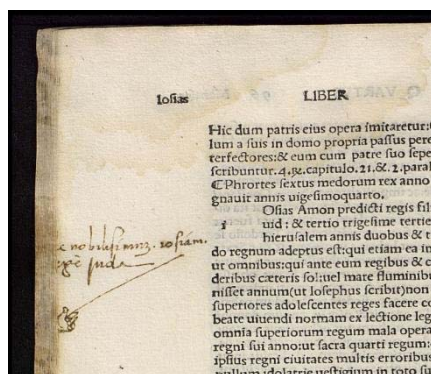 Iosias LIBER
Hic dum patris eius opera imitaretur:
lum a suis in domo propria passus
terfectores:& eum cum patre suo
scribuntur.4.R̃.capitulo.21.&.2.paral
¶Phrortes sextus medorum rex anno
gnauit annis uigesimoquarto.
Osias Amon predicti regis
i uid:& tertio trigesime
hierusalem annis duobus &
do regnum adeptus est:qui etiam ea
ut omnibus:qui ante eum regibus &
deribus cæteris sol:uel mare
nisset annum(ut Iosephus scribit)non
superiores adolescentes reges facere
beate uiuendi normam ex lectione
omnia superiorum regum mala opera
regni sui anno:ut sacra quarti regum:
ipsius regni ciuitates multis
nullum idolatrie uestigium in toto
nobilissimuz. iosiam.
iuda